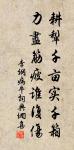 耕犁千亩实千箱
力尽筋疲谁复伤
李纲病牛词典网喜